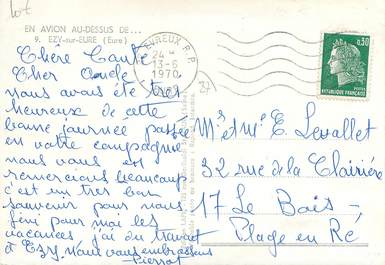 lot
EN AVION AU-DESSUS DE...
9. EZY-sur-EURE (Eure)
EVREUX R.P.
24 H
13-6
1970
0,30
POSTES
REPUBLIQUE FRANÇAISE
Chère Tante
Cher Oncle
nous avons été très
heureux de cette
bonne journée passée
en votre compagnie
nous vous en
remercions beaucoup
c'est un très bon
souvenir pour nous
fini pour moi les
vacances j'ai du travail
à Ezy. nous vous embrassons
Pierrot
Mr et Me E. Levallet
32 rue de la Clairière
17 Le Bois -
Plage en Ré